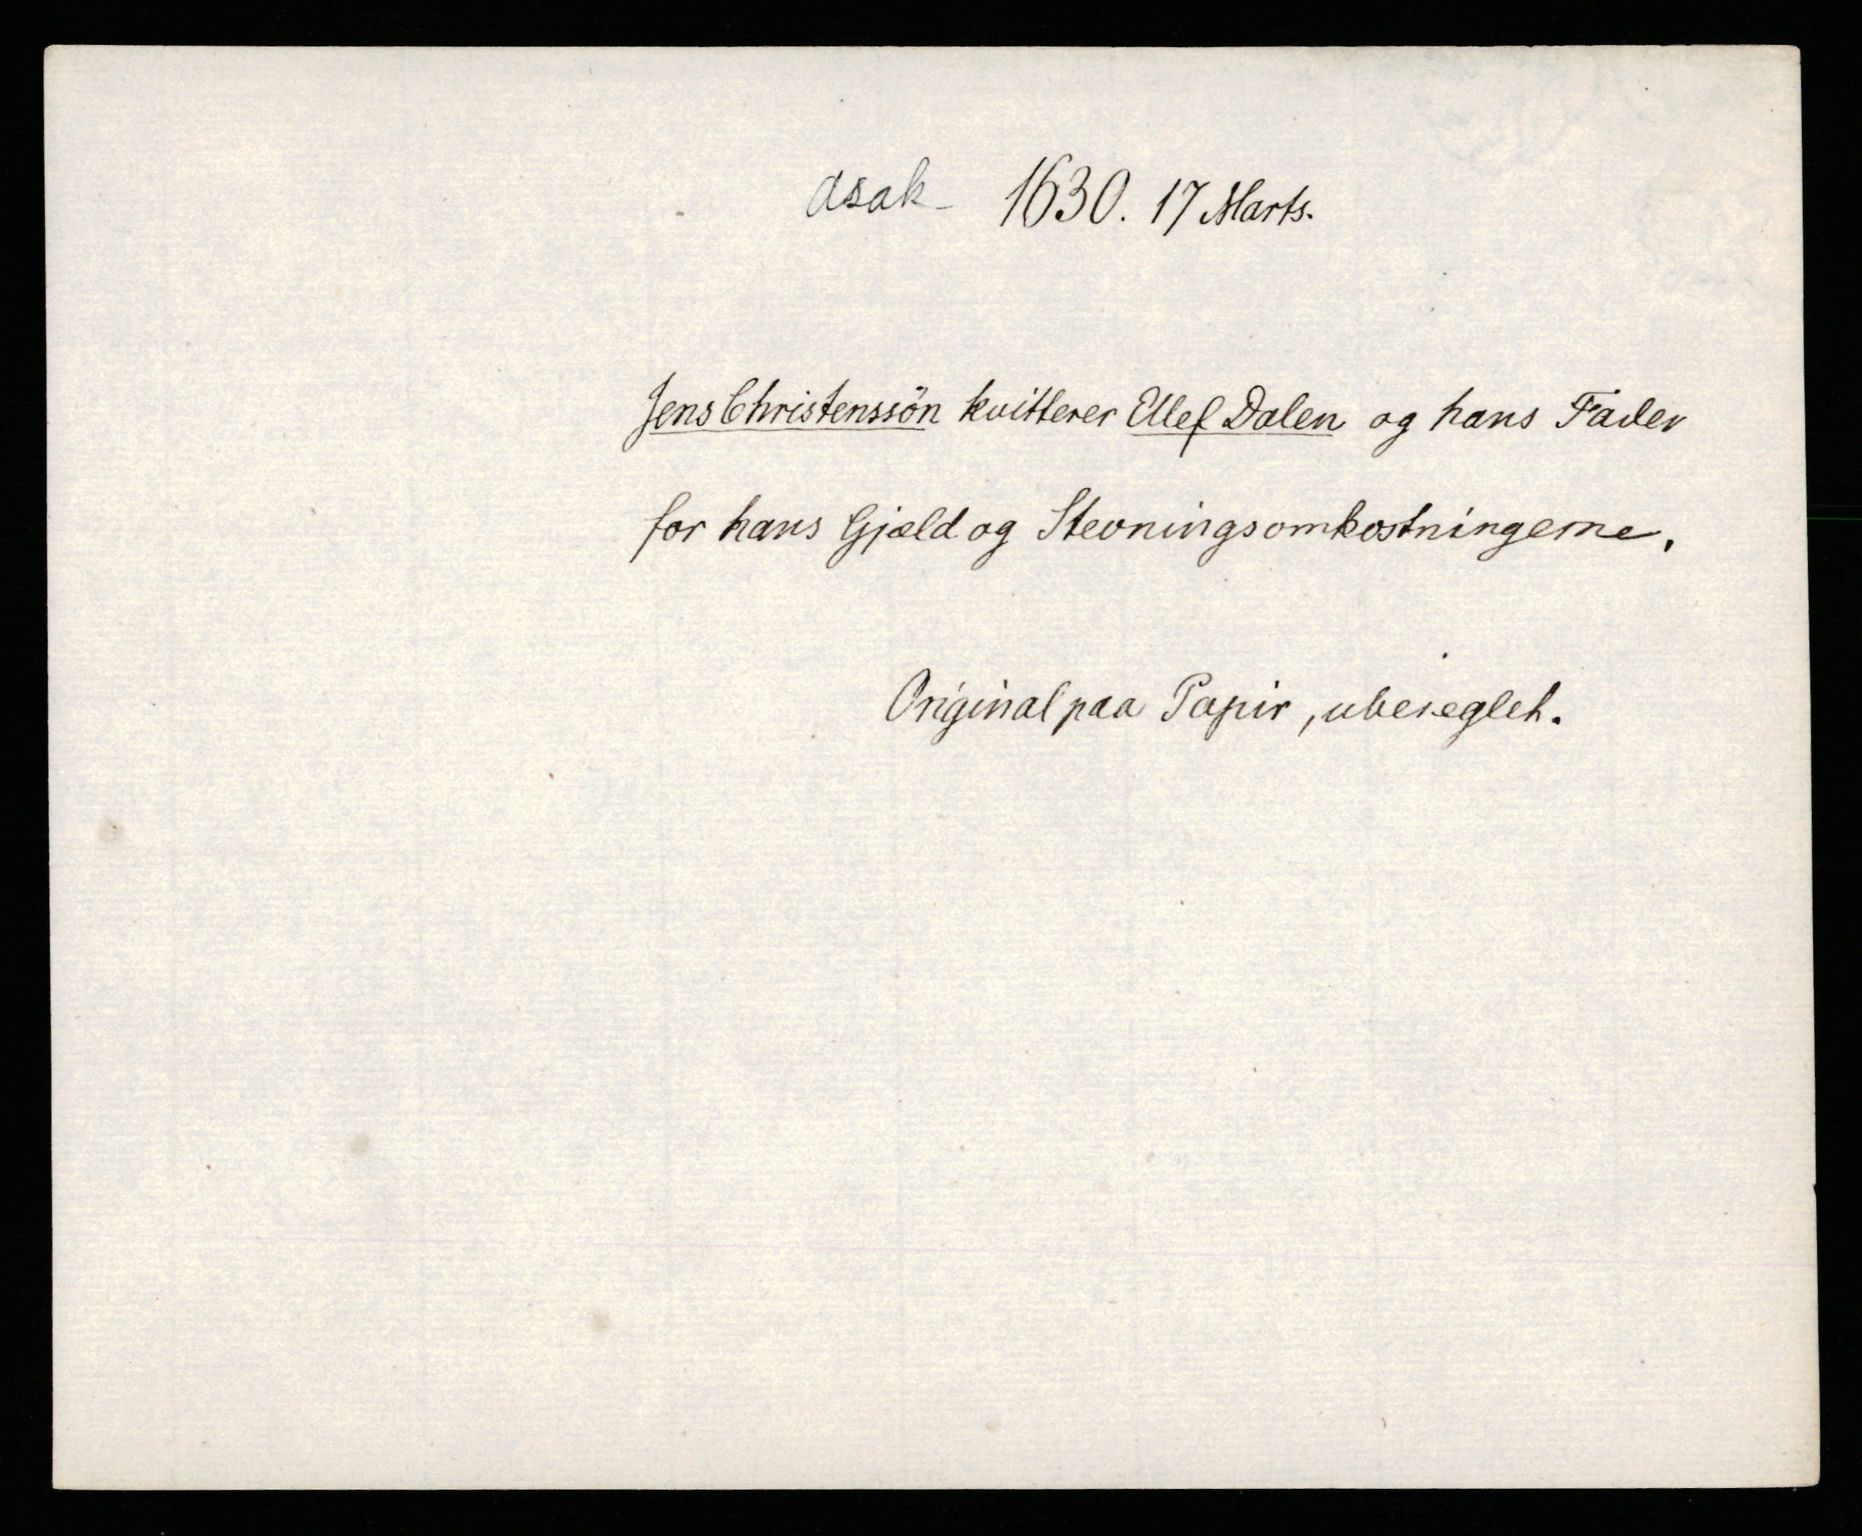 Asak - 1630. 17 Marts.
Jens Christenssön kvitterer Ellef Dalen og hans Fader
for hans Gjæld og Stevningsomkostningerne.
Original paa Papir, ubeseglet.